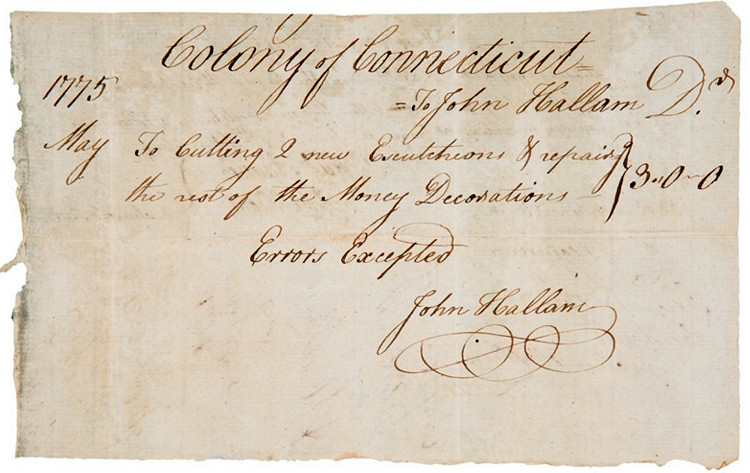 Colony of Connecticut =
1775 = To John Hallam D.r
May To Cutting 2 new Escutcheons & repairg } 3 „ 0 – 0
the rest of the Money Decorations —
Errors Excepted
John Hallam